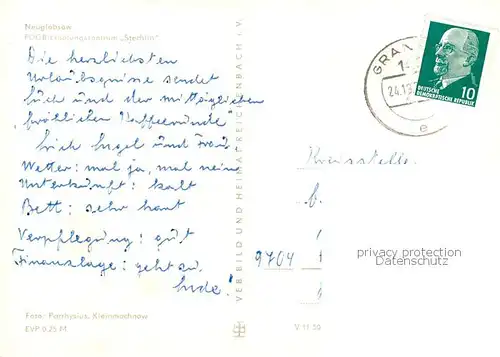 Neuglobsow
FDGB-Erholungszentrum „Stechlin"
Die herzlichsten
Urlaubsgrüsse sendet
Euch und der mittäglichen
„fröhlichen Kaffeerunde"
Erich Engel und Frau
Wetter: mal ja, mal nein
Unterkunft: kalt
Bett: sehr hart
Verpflegung: gut
Finanzlage: geht zu
Ende!
Foto: Parrhysius, Kleinmachnow
EVP 0,25 M
VEB BILD UND HEIMAT REICHENBACH i. V.
V 11 50
GRAN
24.1
e
DEUTSCHE
DEMOKRATISCHE REPUBLIK
10
Kreisstelle
9704
privacy protection
Datenschutz